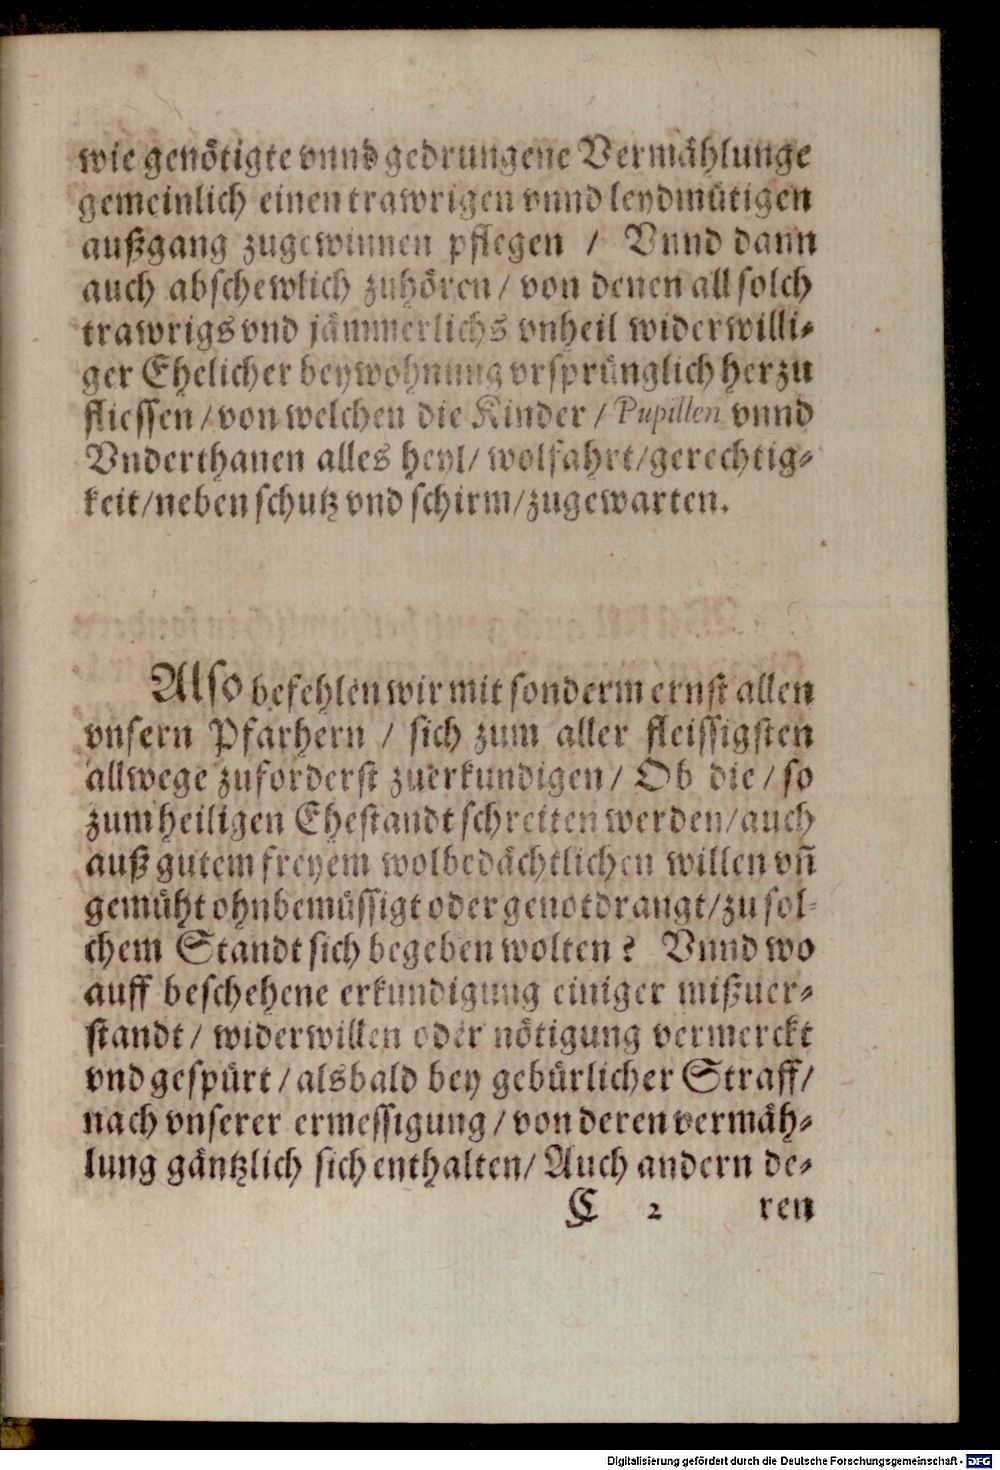 wie genötigte vnnd gedrungene Vermählunge
gemeinlich einen trawrigen vnnd leydmütigen
außgang zugewinnen pflegen / Vnnd dann
auch abschewlich zuhören / von denen all solch
trawrigs vnd jämmerlichs vnheil widerwilli-
ger Ehelicher beywohnung vrsprünglich herzu
fliessen / von welchen die Kinder / Pupillen vnnd
Vnderthanen alles heyl / wolfahrt / gerechtig-
keit / neben schutz vnd schirm / zugewarten.
Also befehlen wir mit sonderm ernst allen
vnsern Pfarhern / sich zum aller fleissigsten
allwege zuforderst zuerkundigen / Ob die / so
zum heiligen Ehestandt schreiten werden / auch
auß gutem freyem wolbedächtlichen willen vñ
gemüht ohnbemüssigt oder genotdrangt / zu sol-
chem Standt sich begeben wolten ? Vnnd wo
auff beschehene erkundigung einiger mißuer-
standt / widerwillen oder nötigung vermerckt
vnd gespürt / alsbald bey gebürlicher Straff /
nach vnserer ermessigung / von deren vermäh-
lung gäntzlich sich enthalten / Auch andern de-
C 2 ren
Digitalisierung gefördert durch die Deutsche Forschungsgemeinschaft - DFG